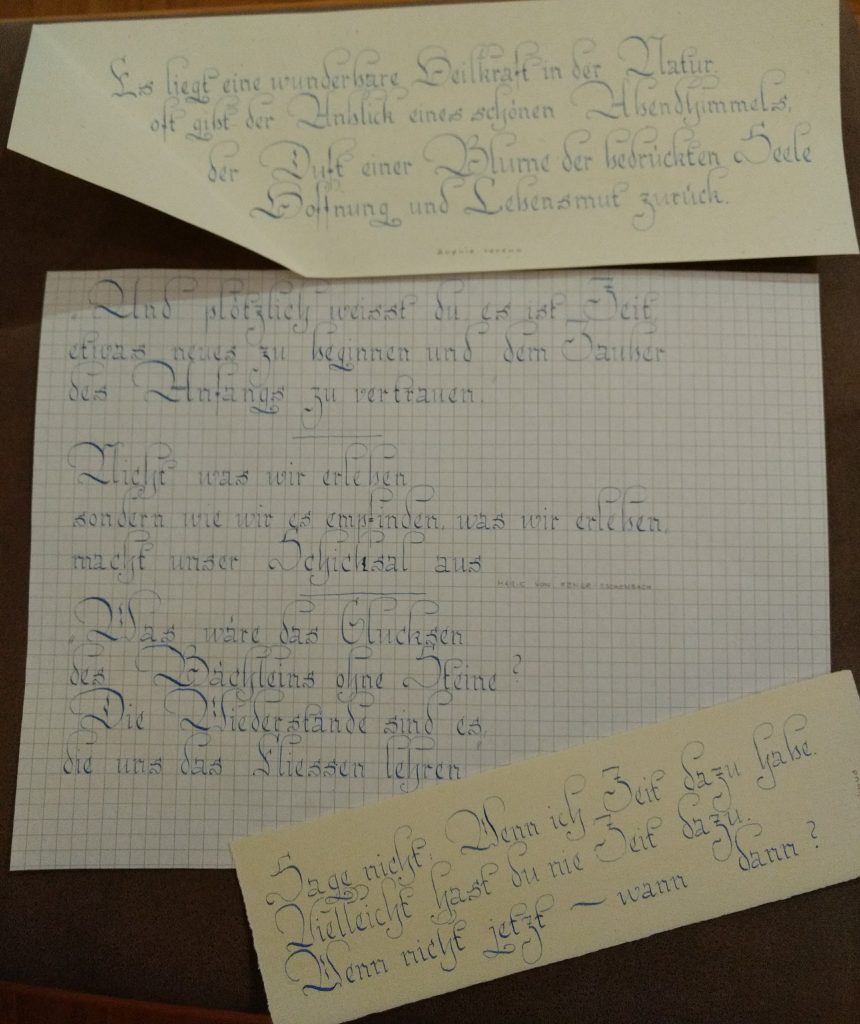 Es liegt eine wunderbare Heilkraft in der Natur,
oft gibt der Anblick eines schönen Abendhimmels,
der Duft einer Blume der bedrückten Seele
Hoffnung und Lebensmut zurück.
"Und plötzlich weisst du, es ist Zeit,
etwas neues zu beginnen und dem Zauber
des Anfangs zu vertrauen.
Nicht was wir erleben
sondern wie wir es empfinden, was wir erleben,
macht unser Schicksal aus
MARIE VON EBNER ESCHENBACH
"Was wäre das Glucksen
des Bächleins ohne Steine?
Die Wiederstände sind es,
die uns das Fliessen lehren"
Sage nicht: Wenn ich Zeit dazu habe.
Vielleicht hast du nie Zeit dazu.
Wenn nicht jetzt – wann dann?